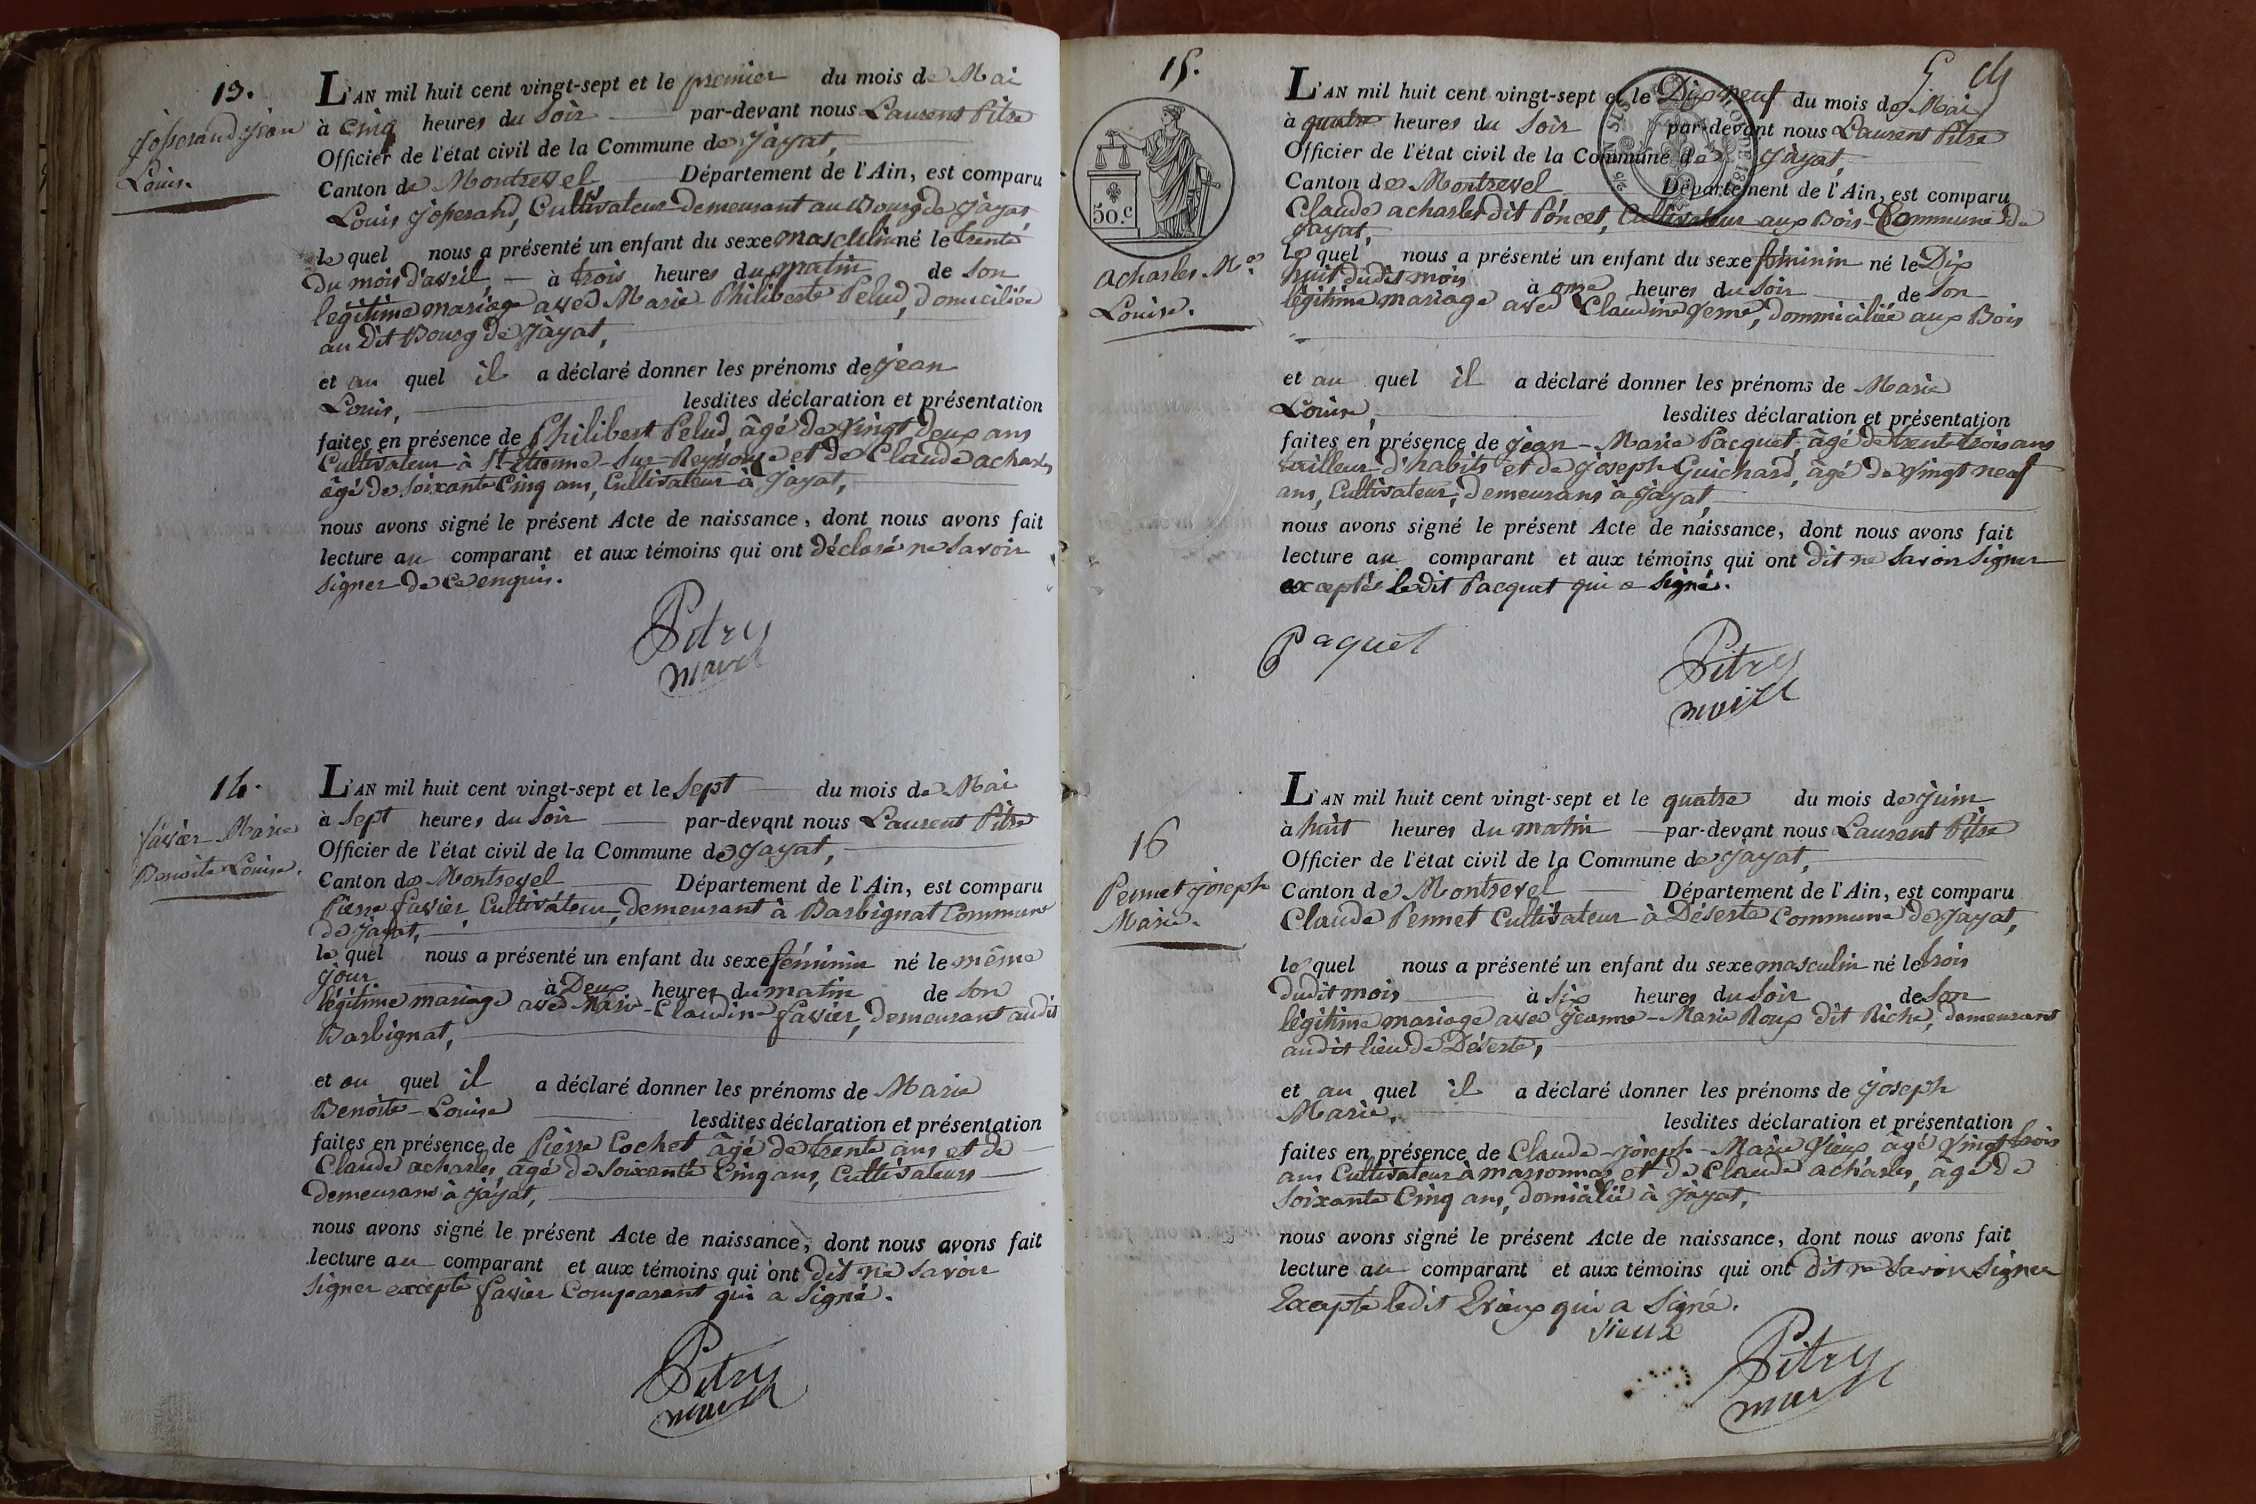 13.
Josserand Jean
Louis.
L'AN mil huit cent vingt-sept et le premier du mois de Mai
à Cinq heures du Soir par-devant nous Laurent Pitre
Officier de l'état civil de la Commune de Jayat,
Canton de Montrevel Département de l'Ain, est comparu
Louis Josserand, Cultivateur demeurant au Bourg de Jayat
le quel nous a présenté un enfant du sexe masculin né le trente
du mois d'avril, à trois heures du matin de Son
légitime mariage avec Marie Philiberte Pelud, domiciliée
au dit Bourg de Jayat,
et au quel il a déclaré donner les prénoms de Jean
Louis, lesdites déclaration et présentation
faites en présence de Philibert Pelud, âgé de vingt deux ans
Cultivateur à St Etienne-Sur-Reyssouze et de Claude acharles
âgé de soixante Cinq ans, Cultivateur à Jayat,
nous avons signé le présent Acte de naissance, dont nous avons fait
lecture au comparant et aux témoins qui ont déclaré ne Savoir
Signer de ce enquis.
Pitre
14.
favier Marie
Benoite Louise.
L'AN mil huit cent vingt-sept et le Sept du mois de Mai
à Sept heures du Soir par-devant nous Laurent Pitre
Officier de l'état civil de la Commune de Jayat,
Canton de Montrevel Département de l'Ain, est comparu
Pierre favier Cultivateur, demeurant à Barbignat Commune
de Jayat,
le quel nous a présenté un enfant du sexe féminin né le même
jour à Deux heures du matin de Son
légitime mariage avec Marie-Claudine favier, demeurant audit
Barbignat,
et au quel il a déclaré donner les prénoms de Marie
Benoite-Louise lesdites déclaration et présentation
faites en présence de Pierre Cochet âgé de trente ans et de
Claude acharles, âgé de soixante Cinq ans, Cultivateurs
demeurans à Jayat,
nous avons signé le présent Acte de naissance, dont nous avons fait
lecture au comparant et aux témoins qui ont dit ne Savoir
Signer excepté favier Comparant qui a Signé.
Pitre
15.
50.c
acharles Mie
Louise.
L'AN mil huit cent vingt-sept et le Dix neuf du mois de Mai
à quatre heures du Soir par-devant nous Laurent Pitre
Officier de l'état civil de la Commune de Jayat,
Canton de Montrevel Département de l'Ain, est comparu
Claude acharles dit Poncet, Cultivateur aux Bois Commune de
Jayat,
le quel nous a présenté un enfant du sexe féminin né le Dix
huit dudit mois à onze heures du Soir de Son
légitime mariage avec Claudine Verne, dommiciliée aux Bois
et au quel il a déclaré donner les prénoms de Marie
Louise, lesdites déclaration et présentation
faites en présence de Jean-Marie Pacquet, âgé de trente trois ans
tailleur d'habits et de Joseph Guichard, âgé de vingt neuf
ans, Cultivateur, demeurans à Jayat,
nous avons signé le présent Acte de naissance, dont nous avons fait
lecture au comparant et aux témoins qui ont dit ne Savoir Signer
exceptée ledit Pacquet qui a Signé.
Paquet
Pitre
16
Pennet Joseph
Marie.
L'AN mil huit cent vingt-sept et le quatre du mois de Juin
à huit heures du matin par-devant nous Laurent Pitre
Officier de l'état civil de la Commune de Jayat,
Canton de Montrevel Département de l'Ain, est comparu
Claude Pennet Cultivateur à Déserte Commune de Jayat,
le quel nous a présenté un enfant du sexe masculin né le trois
dudit mois à Six heures du Soir de Son
légitime mariage avec Jeanne-Marie Roux dit Riche, demeurant
audit lieu de Déserte,
et au quel il a déclaré donner les prénoms de Joseph
Marie, lesdites déclaration et présentation
faites en présence de Claude-Joseph-Marie Vieux âgé vingt trois
ans Cultivateur à marsonnas et de Claude acharles, âgé de
Soixante Cinq ans, domicilié à Jayat,
nous avons signé le présent Acte de naissance, dont nous avons fait
lecture au comparant et aux témoins qui ont dit ne Savoir Signer
Excepté ledit Vieux qui a Signé.
Vieux
Pitre